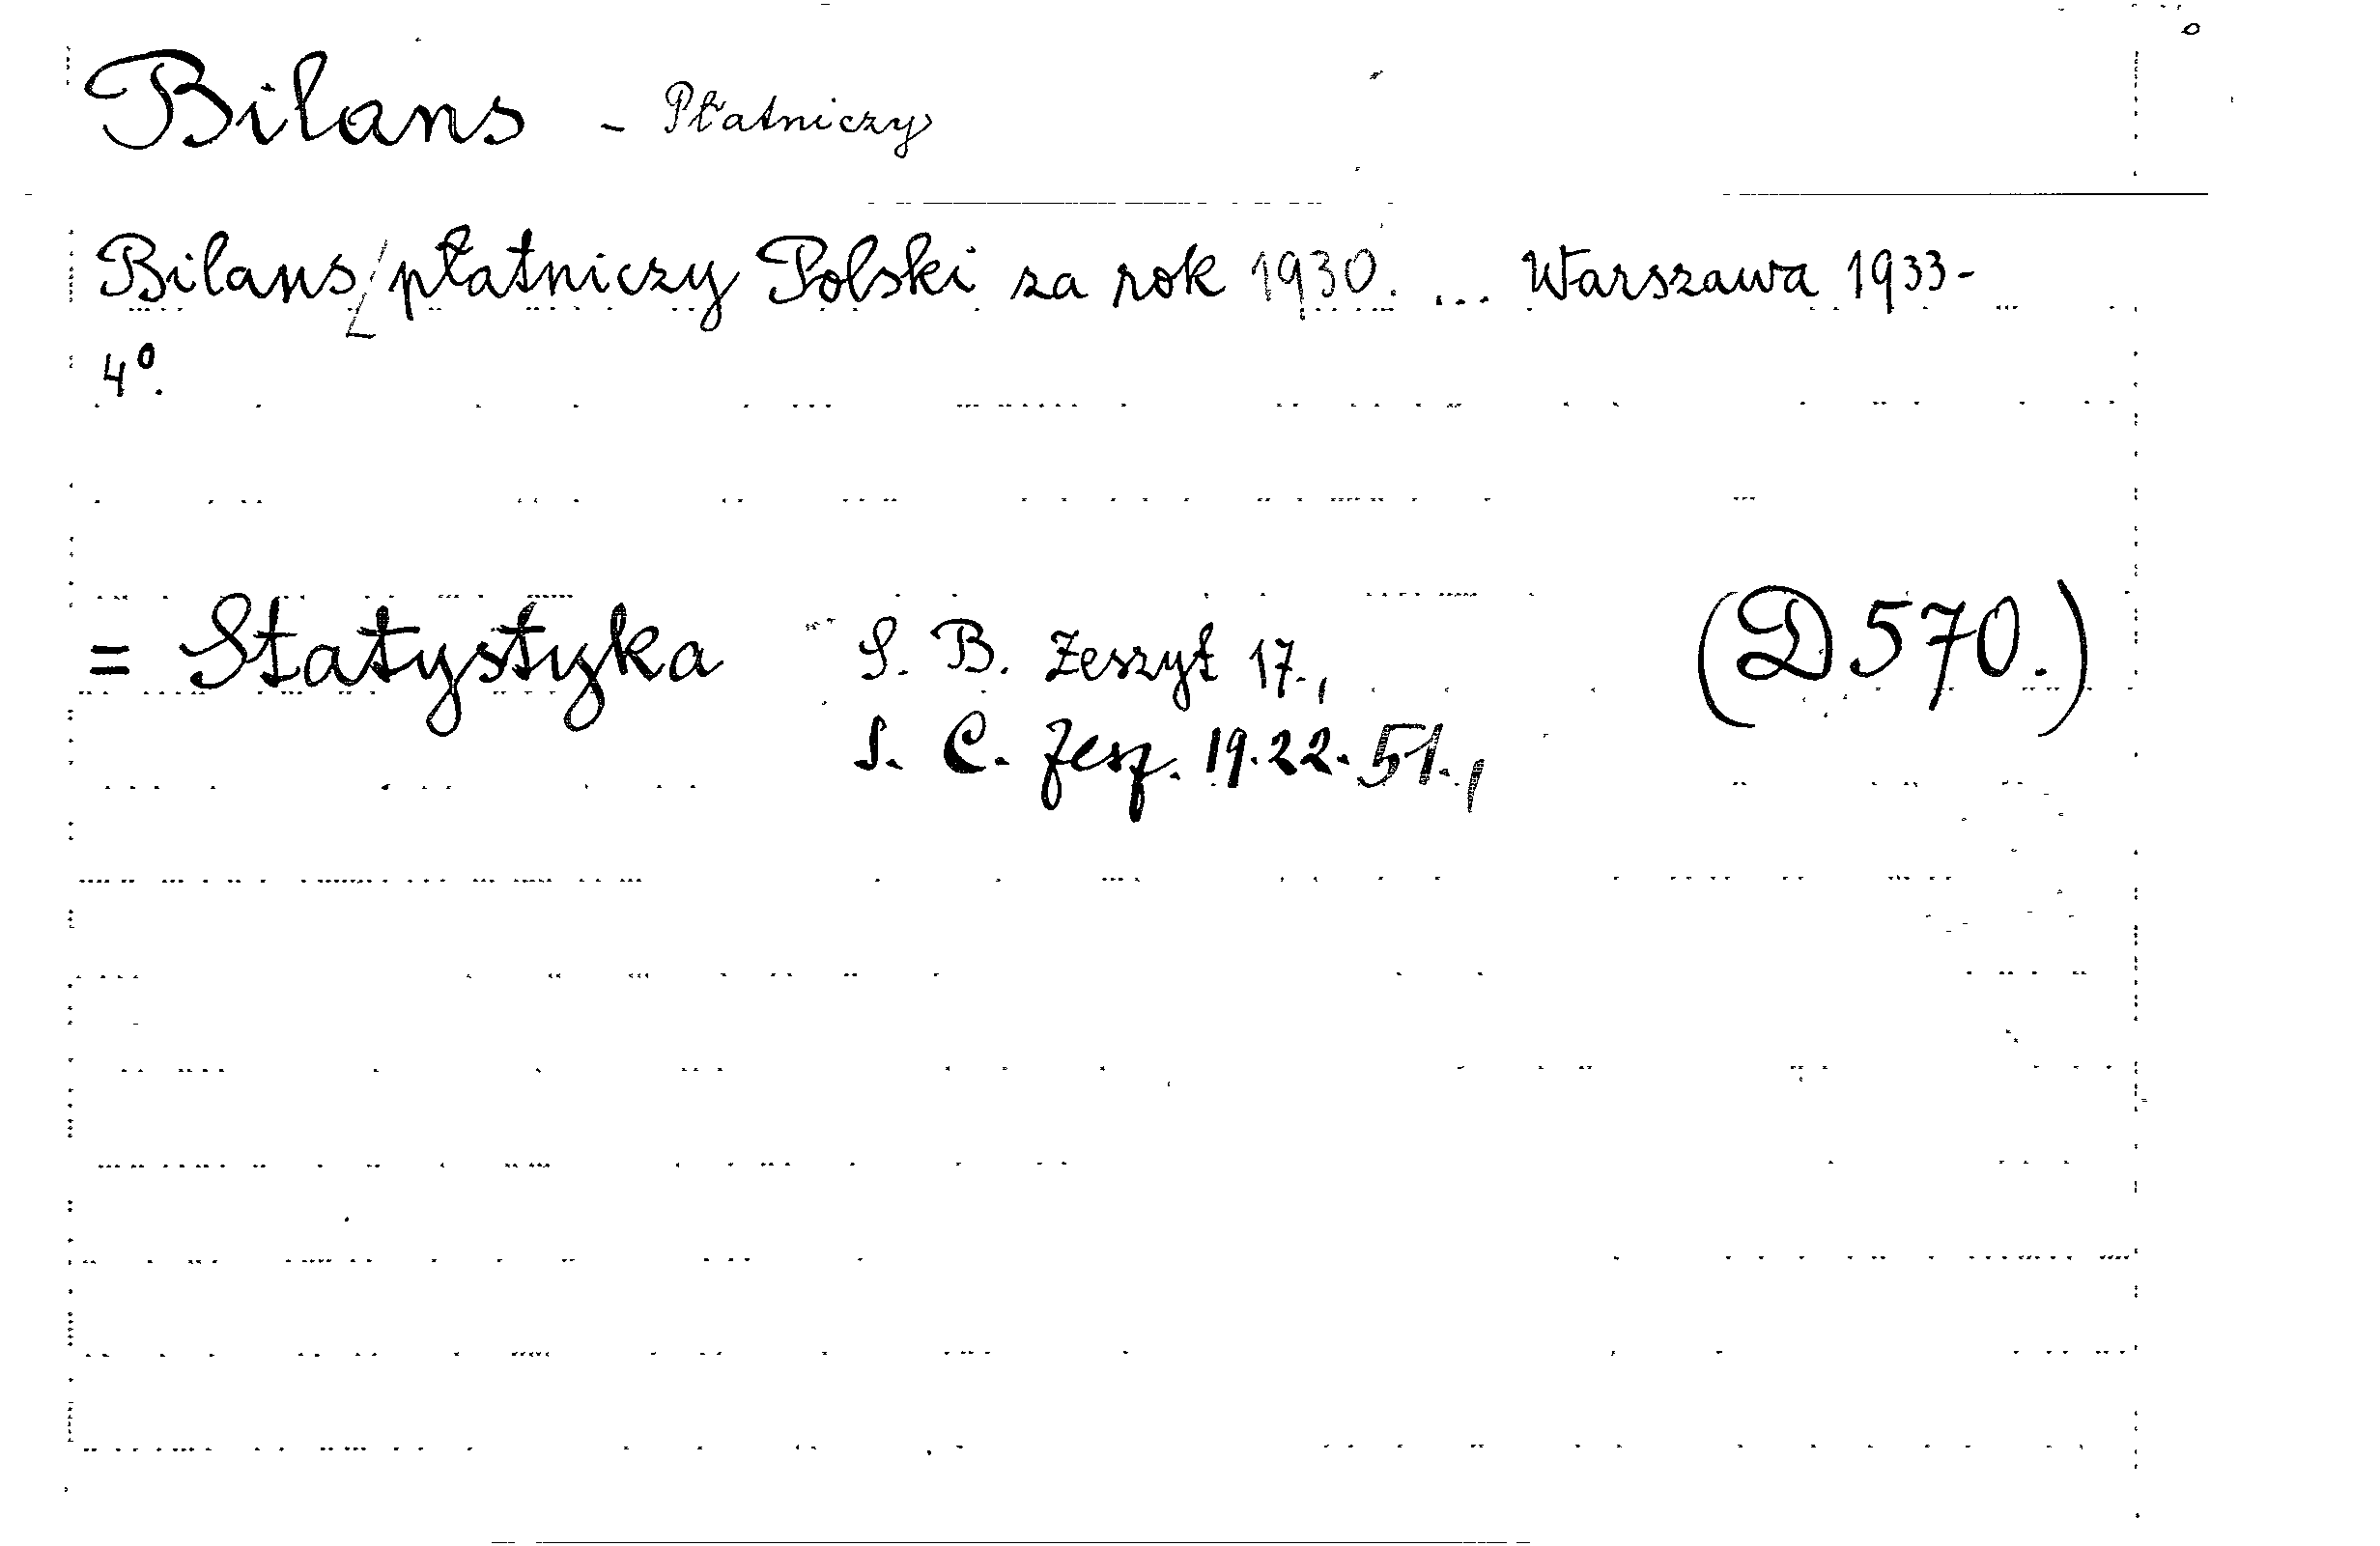 Bilans - Płatniczy
Bilans/płatniczy Polski za rok 1930. ... Warszawa 1933-
4º.
= Statystyka S. B. Zeszyt 17., (D 570.)
S. C. Zesz. 19. 22. 51.,